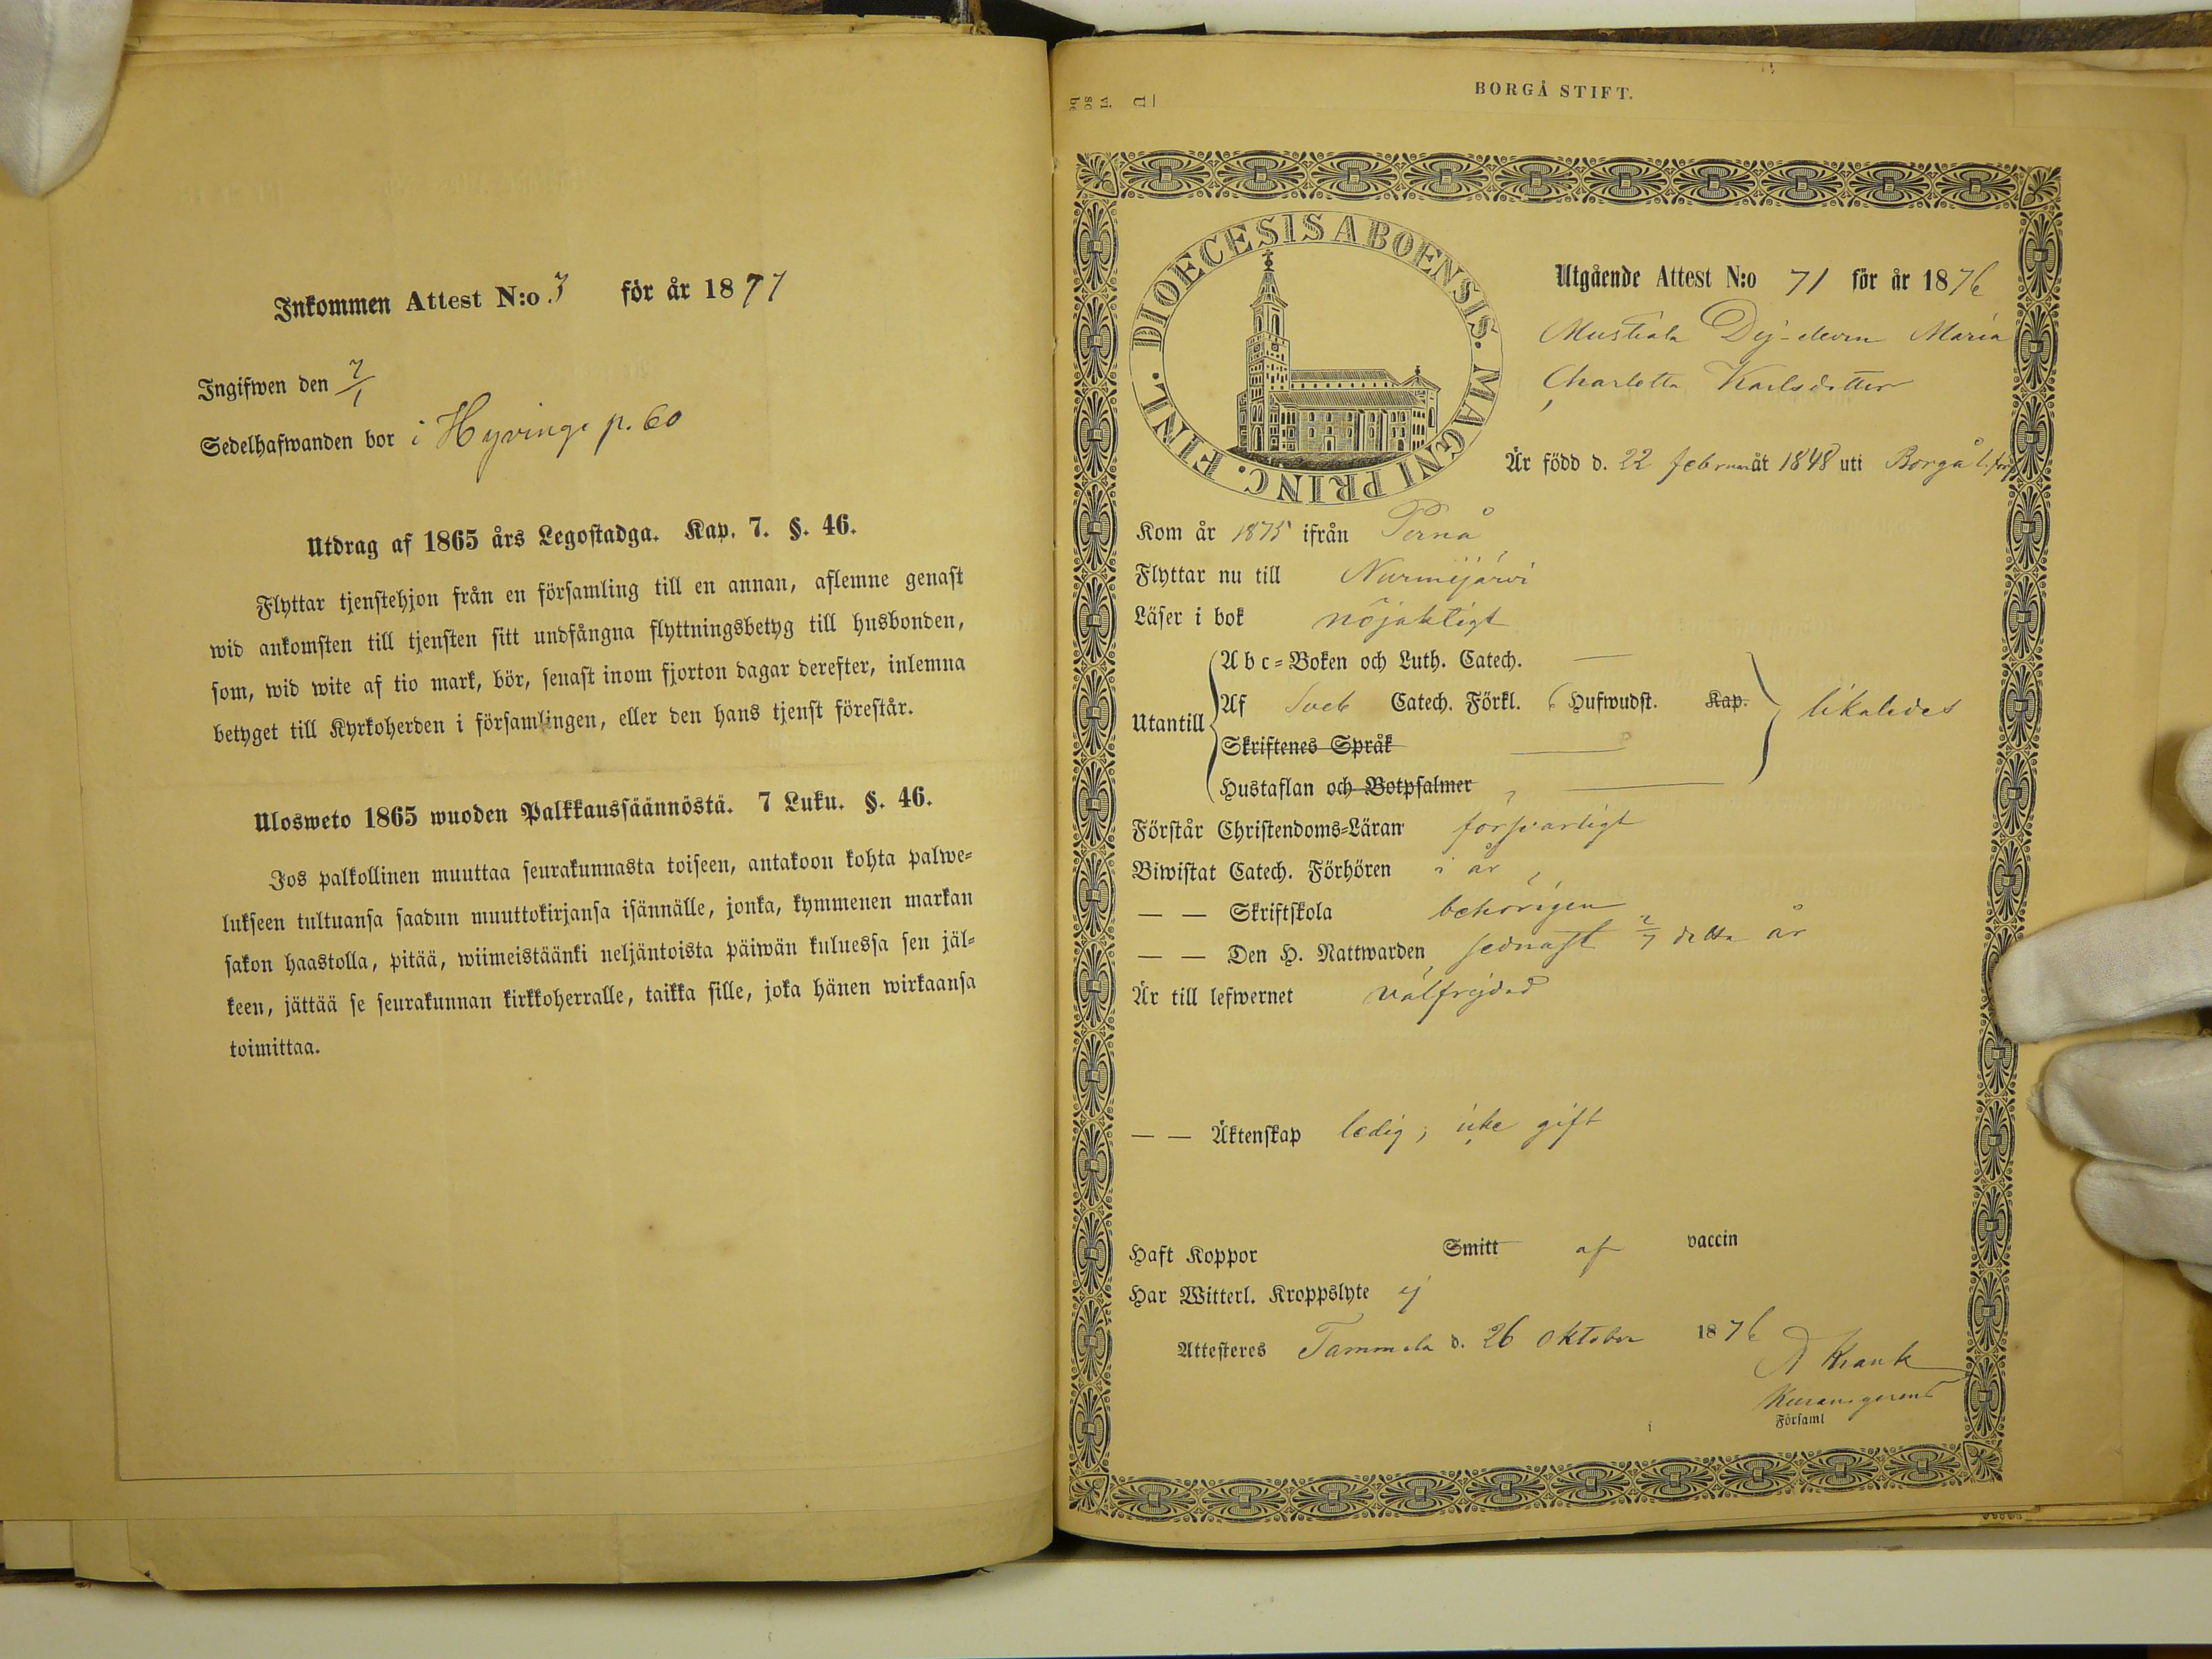 Inkommen Attest N:o 3 för år 1877
Ingifwen den 7/1
Sedelhafwanden bor i Hyvinge p. 60
Utdrag af 1865 års Legostadga. Kap. 7. §. 46.
Flyttar tjenstehjon från en församling till en annan, aflemne genast
wid ankomsten till tjensten sitt undfångna flyttningsbetyg till husbonden,
som, wid wite af tio mark, bör, senast inom fjorton dagar derefter, inlemna
betyget till Kyrkoherden i församlingen, eller den hans tjenst förestår.
Ulosweto 1865 wuoden Palkkaussäännöstä. 7 Luku. §. 46.
Jos palkollinen muuttaa seurakunnasta toiseen, antakoon kohta palwe-
lukseen tultuansa saadun muuttokirjansa isännälle, jonka, kymmenen markan
sakon haastolla, pitää, wiimeistäänki neljäntoista päiwän kuluessa sen jäl-
keen, jättää se seurakunnan kirkkoherralle, taikka sille, joka hänen wirkaansa
toimittaa.
BORGÅ STIFT.
DIOECESIS ABOENSIS. MAGNI PRINC. FINL.
Utgående Attest N:o 71 för år 1876
Mustiala Dej-eleven Maria
Charlotta Karlsdotter
Är född d. 22 februari år 1848 uti Borgå l. förs
Kom år 1875 ifrån Pernå
Flyttar nu till Nurmijärvi
Läser i bok nöjaktigt
Utantill
Abc-Boken och Luth. Catech. —
Af Sveb Catech. Förkl. 6 Hufwudst. Kap. likaledes
Skriftenes Språk —
Hustaflan och Botpsalmer —
Förstår Christendoms-Läran försvarligt
Biwistat Catech. Förhören i år
— — Skriftskola behörigen
— — Den H. Nattwarden sednast 2/7 detta år
Är till lefwernet välfrejdad
— — Äktenskap ledig, icke gift
Haft Koppor Smitt af vaccin
Har Witterl. Kroppslyte ej
Attesteres Tammela d. 26 oktober 1876
Krank
Församl